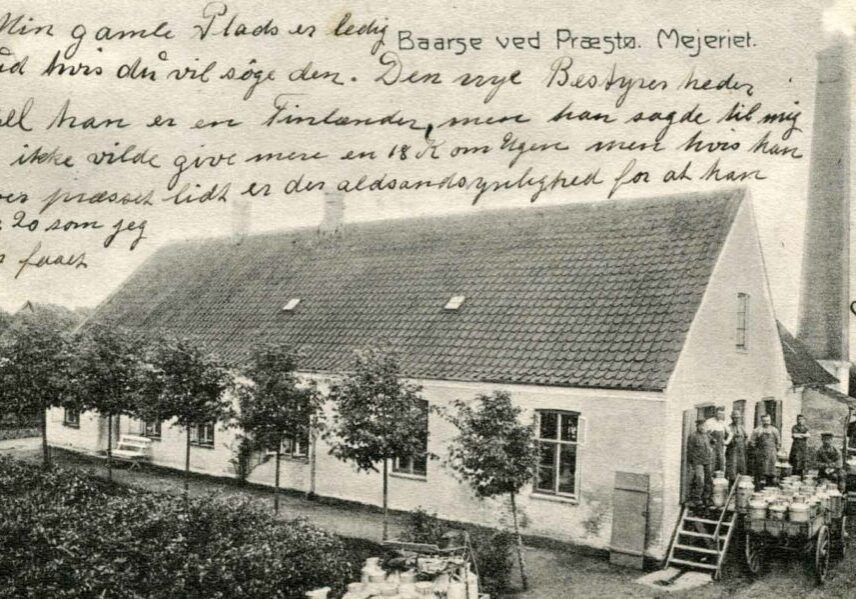 Min gamle Plads er ledig
Baarse ved Præstø. Mejeriet.
hvis du vil söge den. Den nye Bestyrer heder
han er en Finlænder, men han sagde til mig
ikke vilde give mere en 18 K om Ugen men hvis han
præsset lidt er der aldsandsynlighed for at han
20 som jeg
faaet